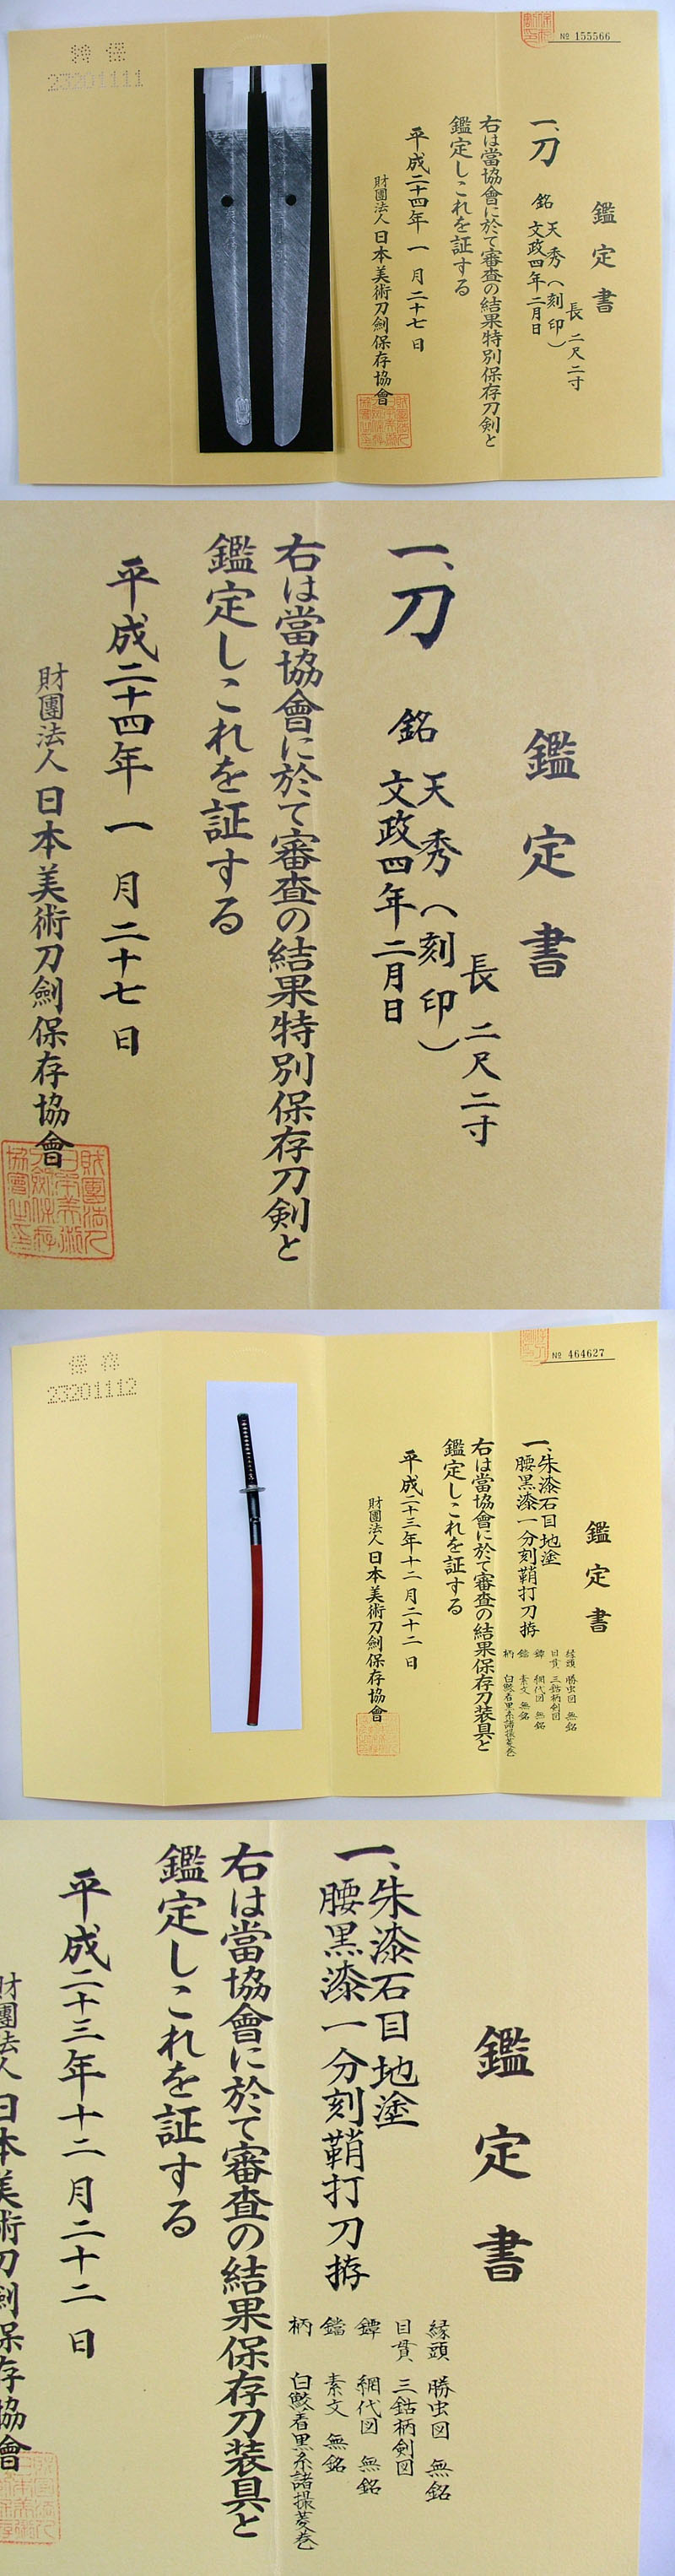 特保
23201111
№ 155566
鑑定書
長 二尺二寸
一、刀 銘 天秀(刻印)
文政四年二月日
右は當協會に於て審査の結果特別保存刀剣と
鑑定しこれを証する
平成二十四年 一 月 二十七 日
財團法人 日本美術刀劍保存協會
鑑定書
長 二尺二寸
一、刀 銘 天秀(刻印)
文政四年二月日
右は當協會に於て審査の結果特別保存刀剣と
鑑定しこれを証する
平成二十四年 一 月 二十七 日
財團法人 日本美術刀劍保存協會
財團法人日本美術刀劍保存協會之印
保存
23201112
№ 464627
鑑定書
一、朱漆石目地塗
腰黒漆一分刻鞘打刀拵
縁頭 勝虫図 無銘
目貫 三鈷柄剣図
鐔 網代図 無銘
鐺 素文 無銘
柄 白鮫着黒糸諸撮菱巻
右は當協會に於て審査の結果保存刀装具と
鑑定しこれを証する
平成二十三年 十二 月 二十二 日
財團法人 日本美術刀劍保存協會
鑑定書
一、朱漆石目地塗
腰黒漆一分刻鞘打刀拵
縁頭 勝虫図 無銘
目貫 三鈷柄剣図
鐔 網代図 無銘
鐺 素文 無銘
柄 白鮫着黒糸諸撮菱巻
右は當協會に於て審査の結果保存刀装具と
鑑定しこれを証する
平成二十三年 十二 月 二十二 日
財團法人 日本美術刀劍保存協會